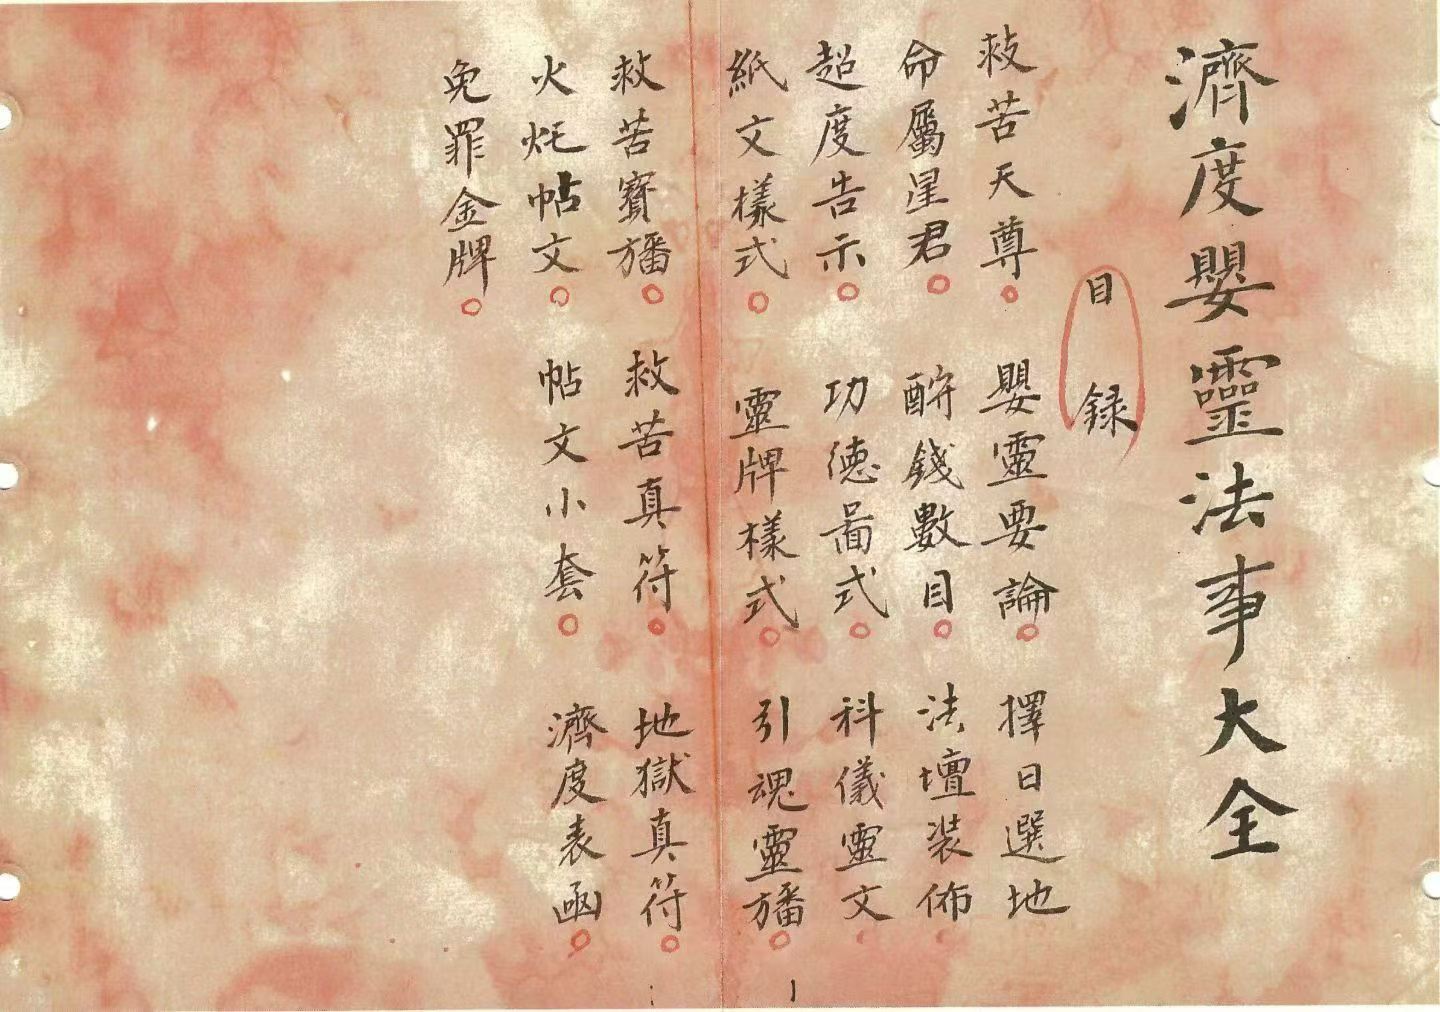 濟度嬰靈法事大全
目錄
救苦天尊。 嬰靈要論。 擇日選地
命屬星君。 酧錢數目。 法壇裝佈
超度告示。 功德啚式。 科儀靈文
紙文樣式。 靈牌樣式。 引魂靈旛。
救苦寳旛。 救苦真符。 地獄真符。
火炬帖文。 帖文小套。 濟度表函。
免罪金牌。